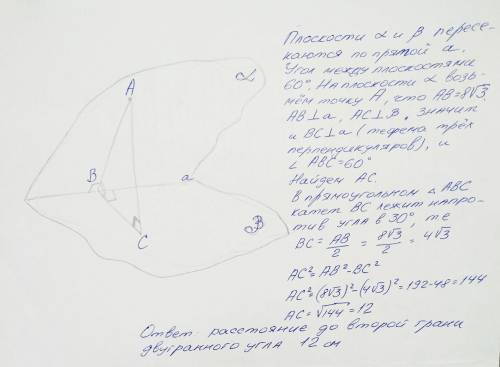 Плоскости α и β пересе-
каются по прямой a.
Угол между плоскостями
60°. На плоскости α возь-
мём точку A, что AB=8√3.
AB⊥a, AC⊥β, значит
и BC⊥a (теорема трёх
перпендикуляров), и
∠ABC=60°
Найдем AC.
В прямоугольном △ABC
катет BC лежит напро-
тив угла в 30°, т.е
BC = AB/2 = 8√3/2 = 4√3
AC²=AB²-BC²
AC²=(8√3)²-(4√3)²=192-48=144
AC=√144=12
Ответ: расстояние до второй грани
двугранного угла 12 см
α
A
B
a
C
β